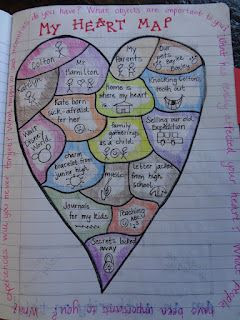 do you have? What objects are important to you?
MY HEART MAP
Colton
Katelyn
Mr.
Hamilton
My
Parents
Our
pets
Bailey
Home is
where my heart
is
Knocking Colton's
tooth out
Kate born
sick - afraid
for her
Selling our old
Expedition
Walt
Disney
World
family
gatherings
as a child
charm
bracelet from
junior high
music
letter jacket
from high
school
Journals
for my kids
Teaching
ABC's
Secrets locked
away
experiences will you never forget?
your heart?
What people
have been important to you?